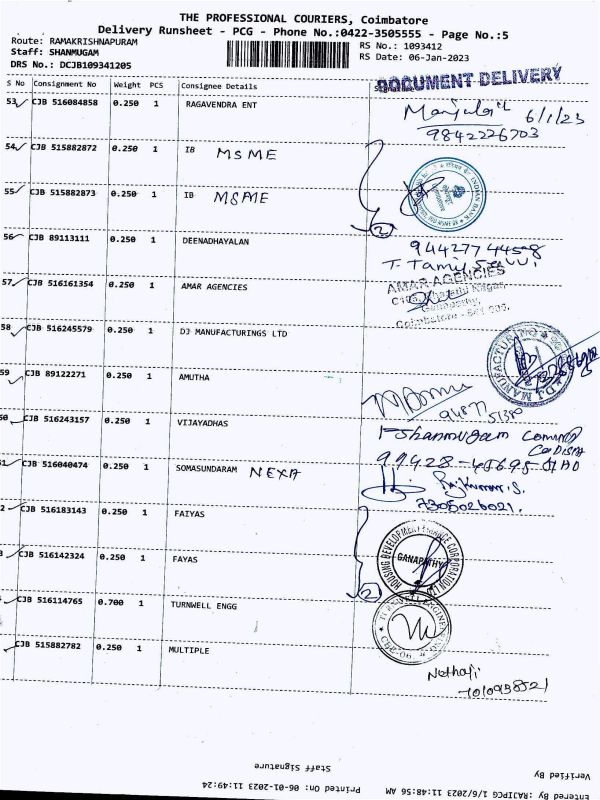 THE PROFESSIONAL COURIERS, Coimbatore
Delivery Runsheet - PCG - Phone No.:0422-3505555 - Page No.:5
Route: RAMAKRISHNAPURAM
RS No.: 1093412
Staff: SHANMUGAM
RS Date: 06-Jan-2023
DRS No.: DCJB109341205
DOCUMENT DELIVERY
S No Consignment No Weight PCS Consignee Details
53 CJB 516084858 0.250 1 RAGAVENDRA ENT
6/1/23
9842226703
54 CJB 515882872 0.250 1 IB MSME
55 CJB 515882873 0.250 1 IB MSME
2
56 CJB 89113111 0.250 1 DEENADHAYALAN
T. Tamil
57 CJB 516161354 0.250 1 AMAR AGENCIES
AMAR AGENCIES
58 CJB 516245579 0.250 1 DJ MANUFACTURINGS LTD
59 CJB 89122271 0.250 1 AMUTHA
CJB 516243157 0.250 1 VIJAYADHAS
Shanmugam
CJB 516040474 0.250 1 SOMASUNDARAM NEXA
Rajkumar.S.
7305026021.
2 CJB 516183143 0.250 1 FAIYAS
HOUSING DEVELOPMENT FINANCE CORPORATION LTD
GANAPATHY
CJB 516142324 0.250 1 FAYAS
2
CJB 516114765 0.700 1 TURNWELL ENGG
CJB 515882782 0.250 1 MULTIPLE
Nethaji
Staff Signature
Verified By
Printed On: 06-01-2023 11:49:24
Entered By: RAJIPCG 1/6/2023 11:48:56 AM